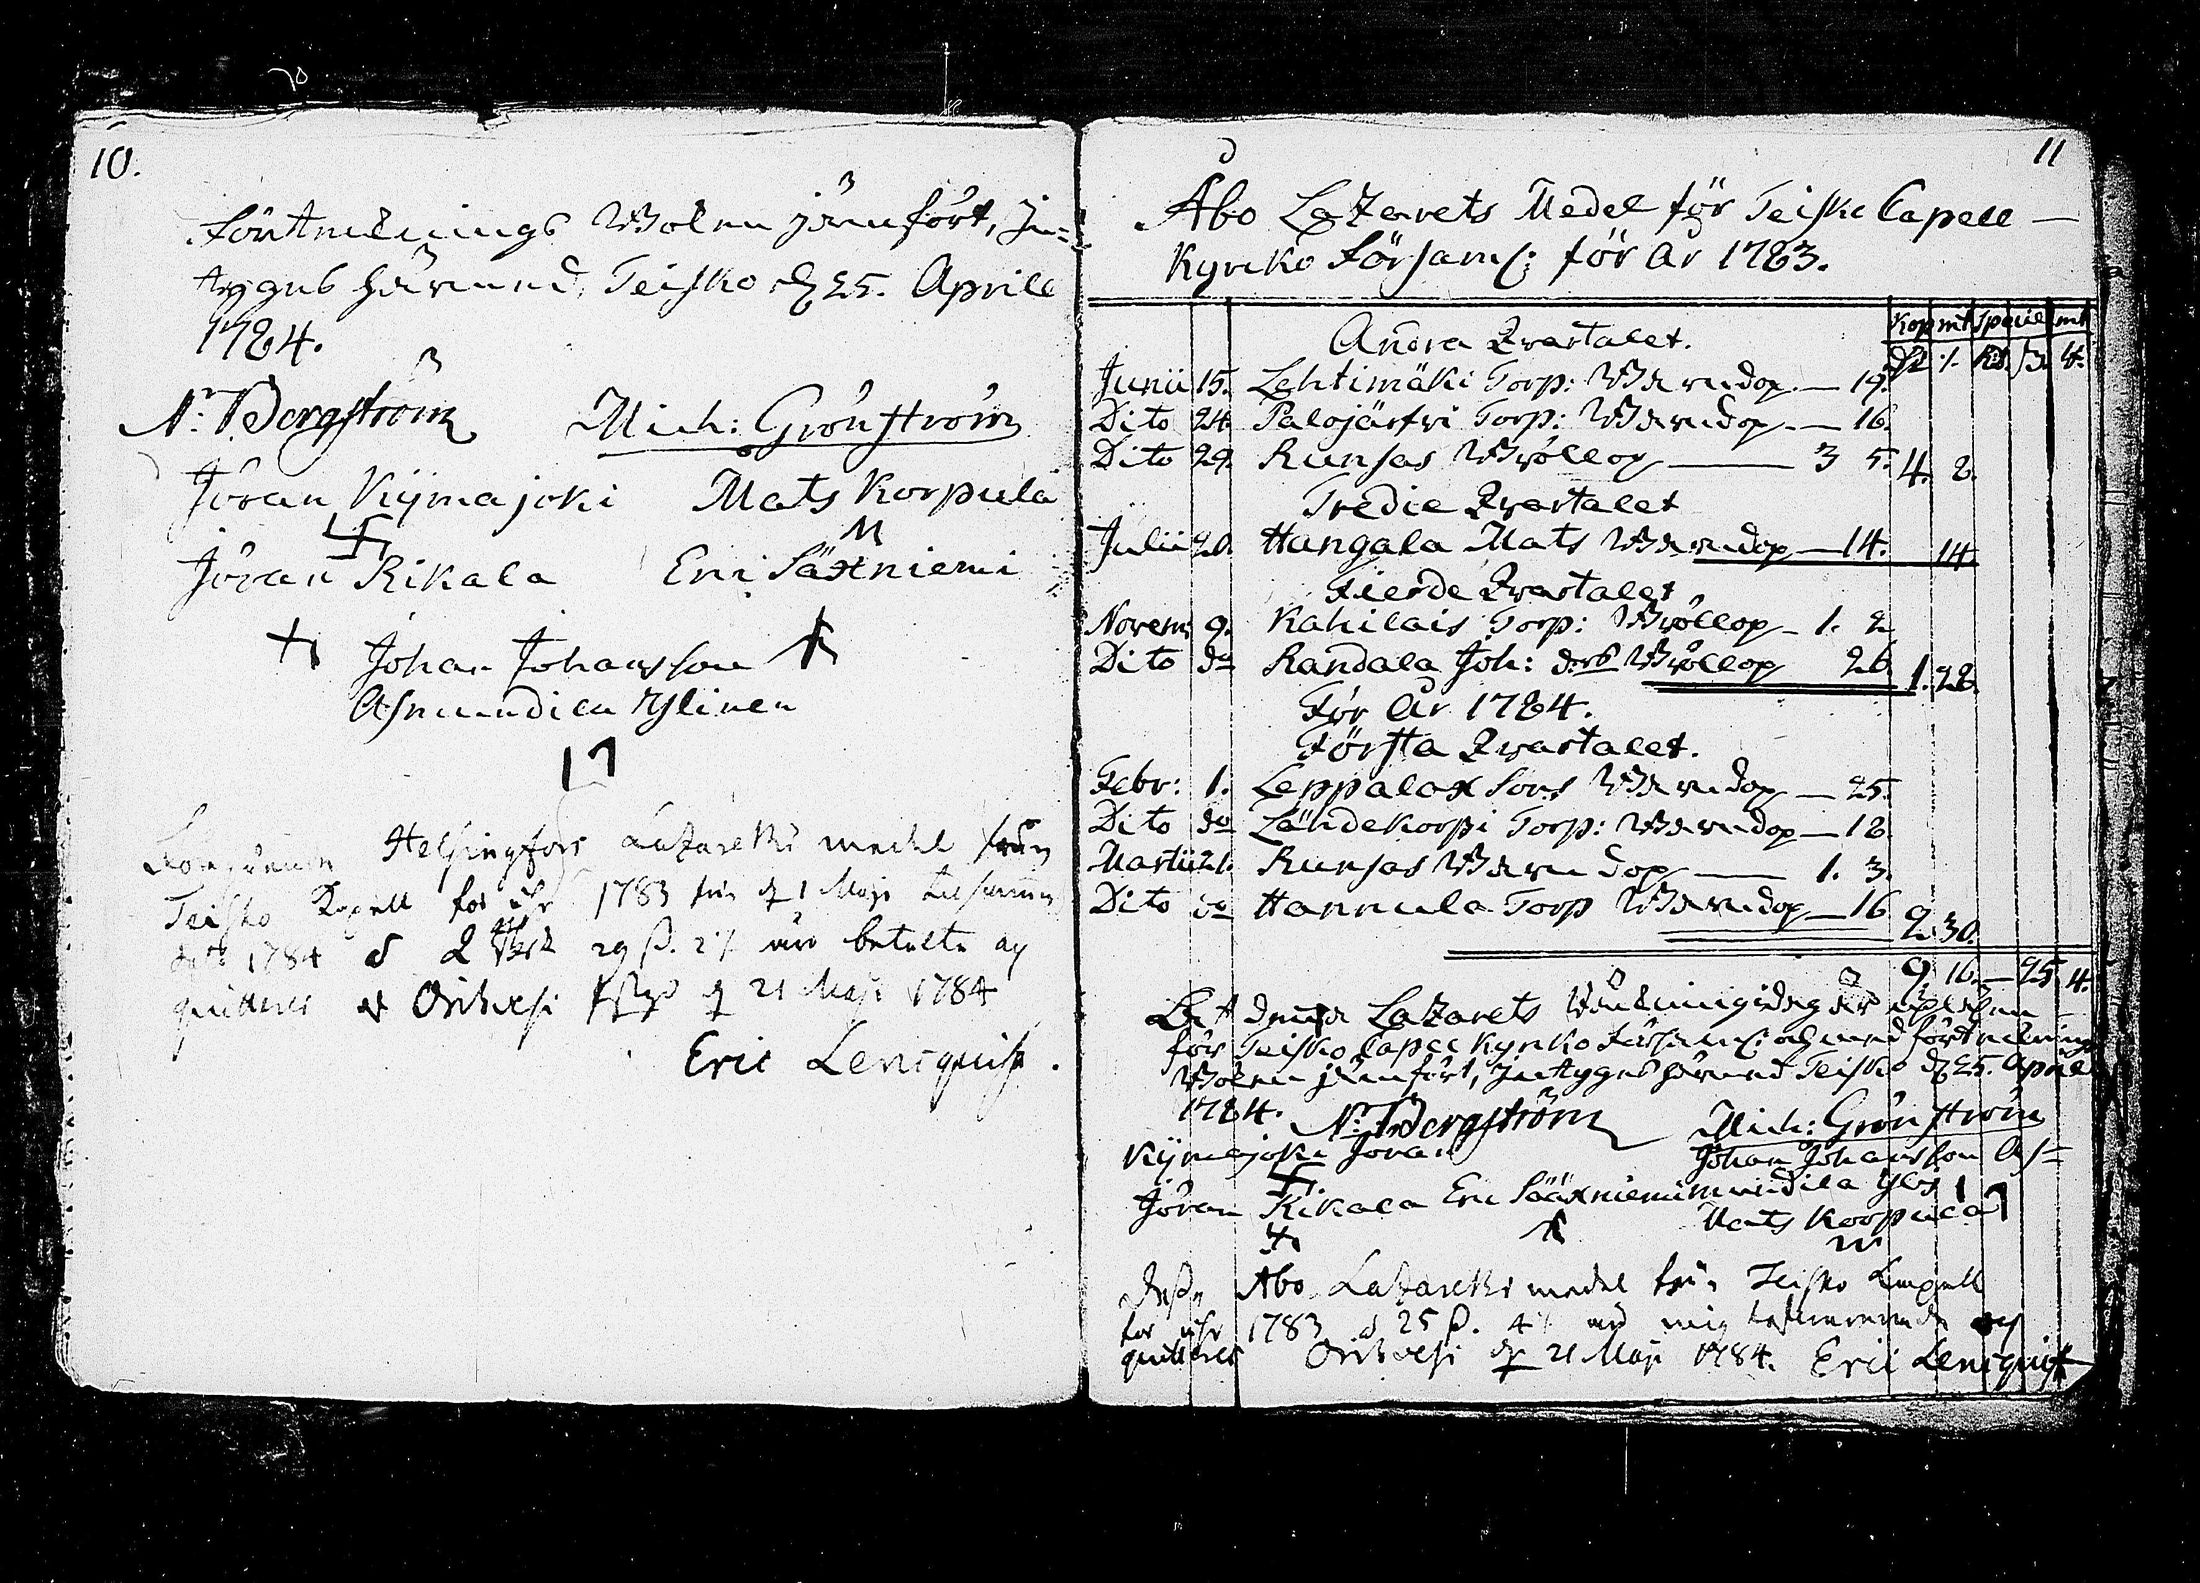 10.
Förteknings Boken jämfört, In=
tygas härmed, Teisko d. 25. Aprill
1784.
N: Bergström Mich: Grönström
Jöran Kijmajoki Mats Korpula
Jöran Rikala Eric Säxniemi
Johan Johansson
Asmundila Yllinen
Helsingfors Lazaretts medel från
Teisko Capell för åhr 1783 til d. 1 Maji
1784 á 2 29 ß. 2 äro betalte og
quitteres at Orihvesi d. 21 Maji 1784
Eric Lencquist.
11
Åbo Lazarets Medel för Teisko Capell
Kyrko Församl: för År 1783.
Kopmt Speciemt
Andra Qvartalet.
Junii 15. Lehtimäki Torp: Barndop — 19.
Dito 24. Palojärfwi Torp: Barndop — 16.
Dito 29. Runsas Bröllop — 3 5. 4. 8.
Tredie Qvartalet
Julii 20. Hangala Mats Barndop — 14. 14.
Fierde Qvartalet
Novem: 9. Kahilais Torp: Bröllop — 1. 2
Dito do Randala Joh: Bröllop 26 1. 28.
För År 1784.
Första Qvartalet.
Febr: 1. Leppalax Sons Barndop — 25.
Dito do Ländekorpi Torp: Barndop — 18.
Martii 21. Runsas Barndop — 1. 3.
Dito do Hannula Torp Barndop — 16 2. 30.
9. 16. — 25 4.
At denna Lazarets Räkning är upläsen
för Teisko Capell Kyrko Församl: och med förteknings
Boken jämfört, Intygas härmed Teisko d. 25. Aprill
1784. N: Bergström Mich: Grönström
Kijmajoki Jöran Johan Johansson As=
Jöran Rikala Eric Sääxniemi mundila Yllis
Mats Korpula
Desse Åbo Lazaretts medel från Teisko Capell
för åhr 1783 á 25 ß. 4 mig og
quitteres Orihvesi d. 21 Maji 1784. Eric Lencquist